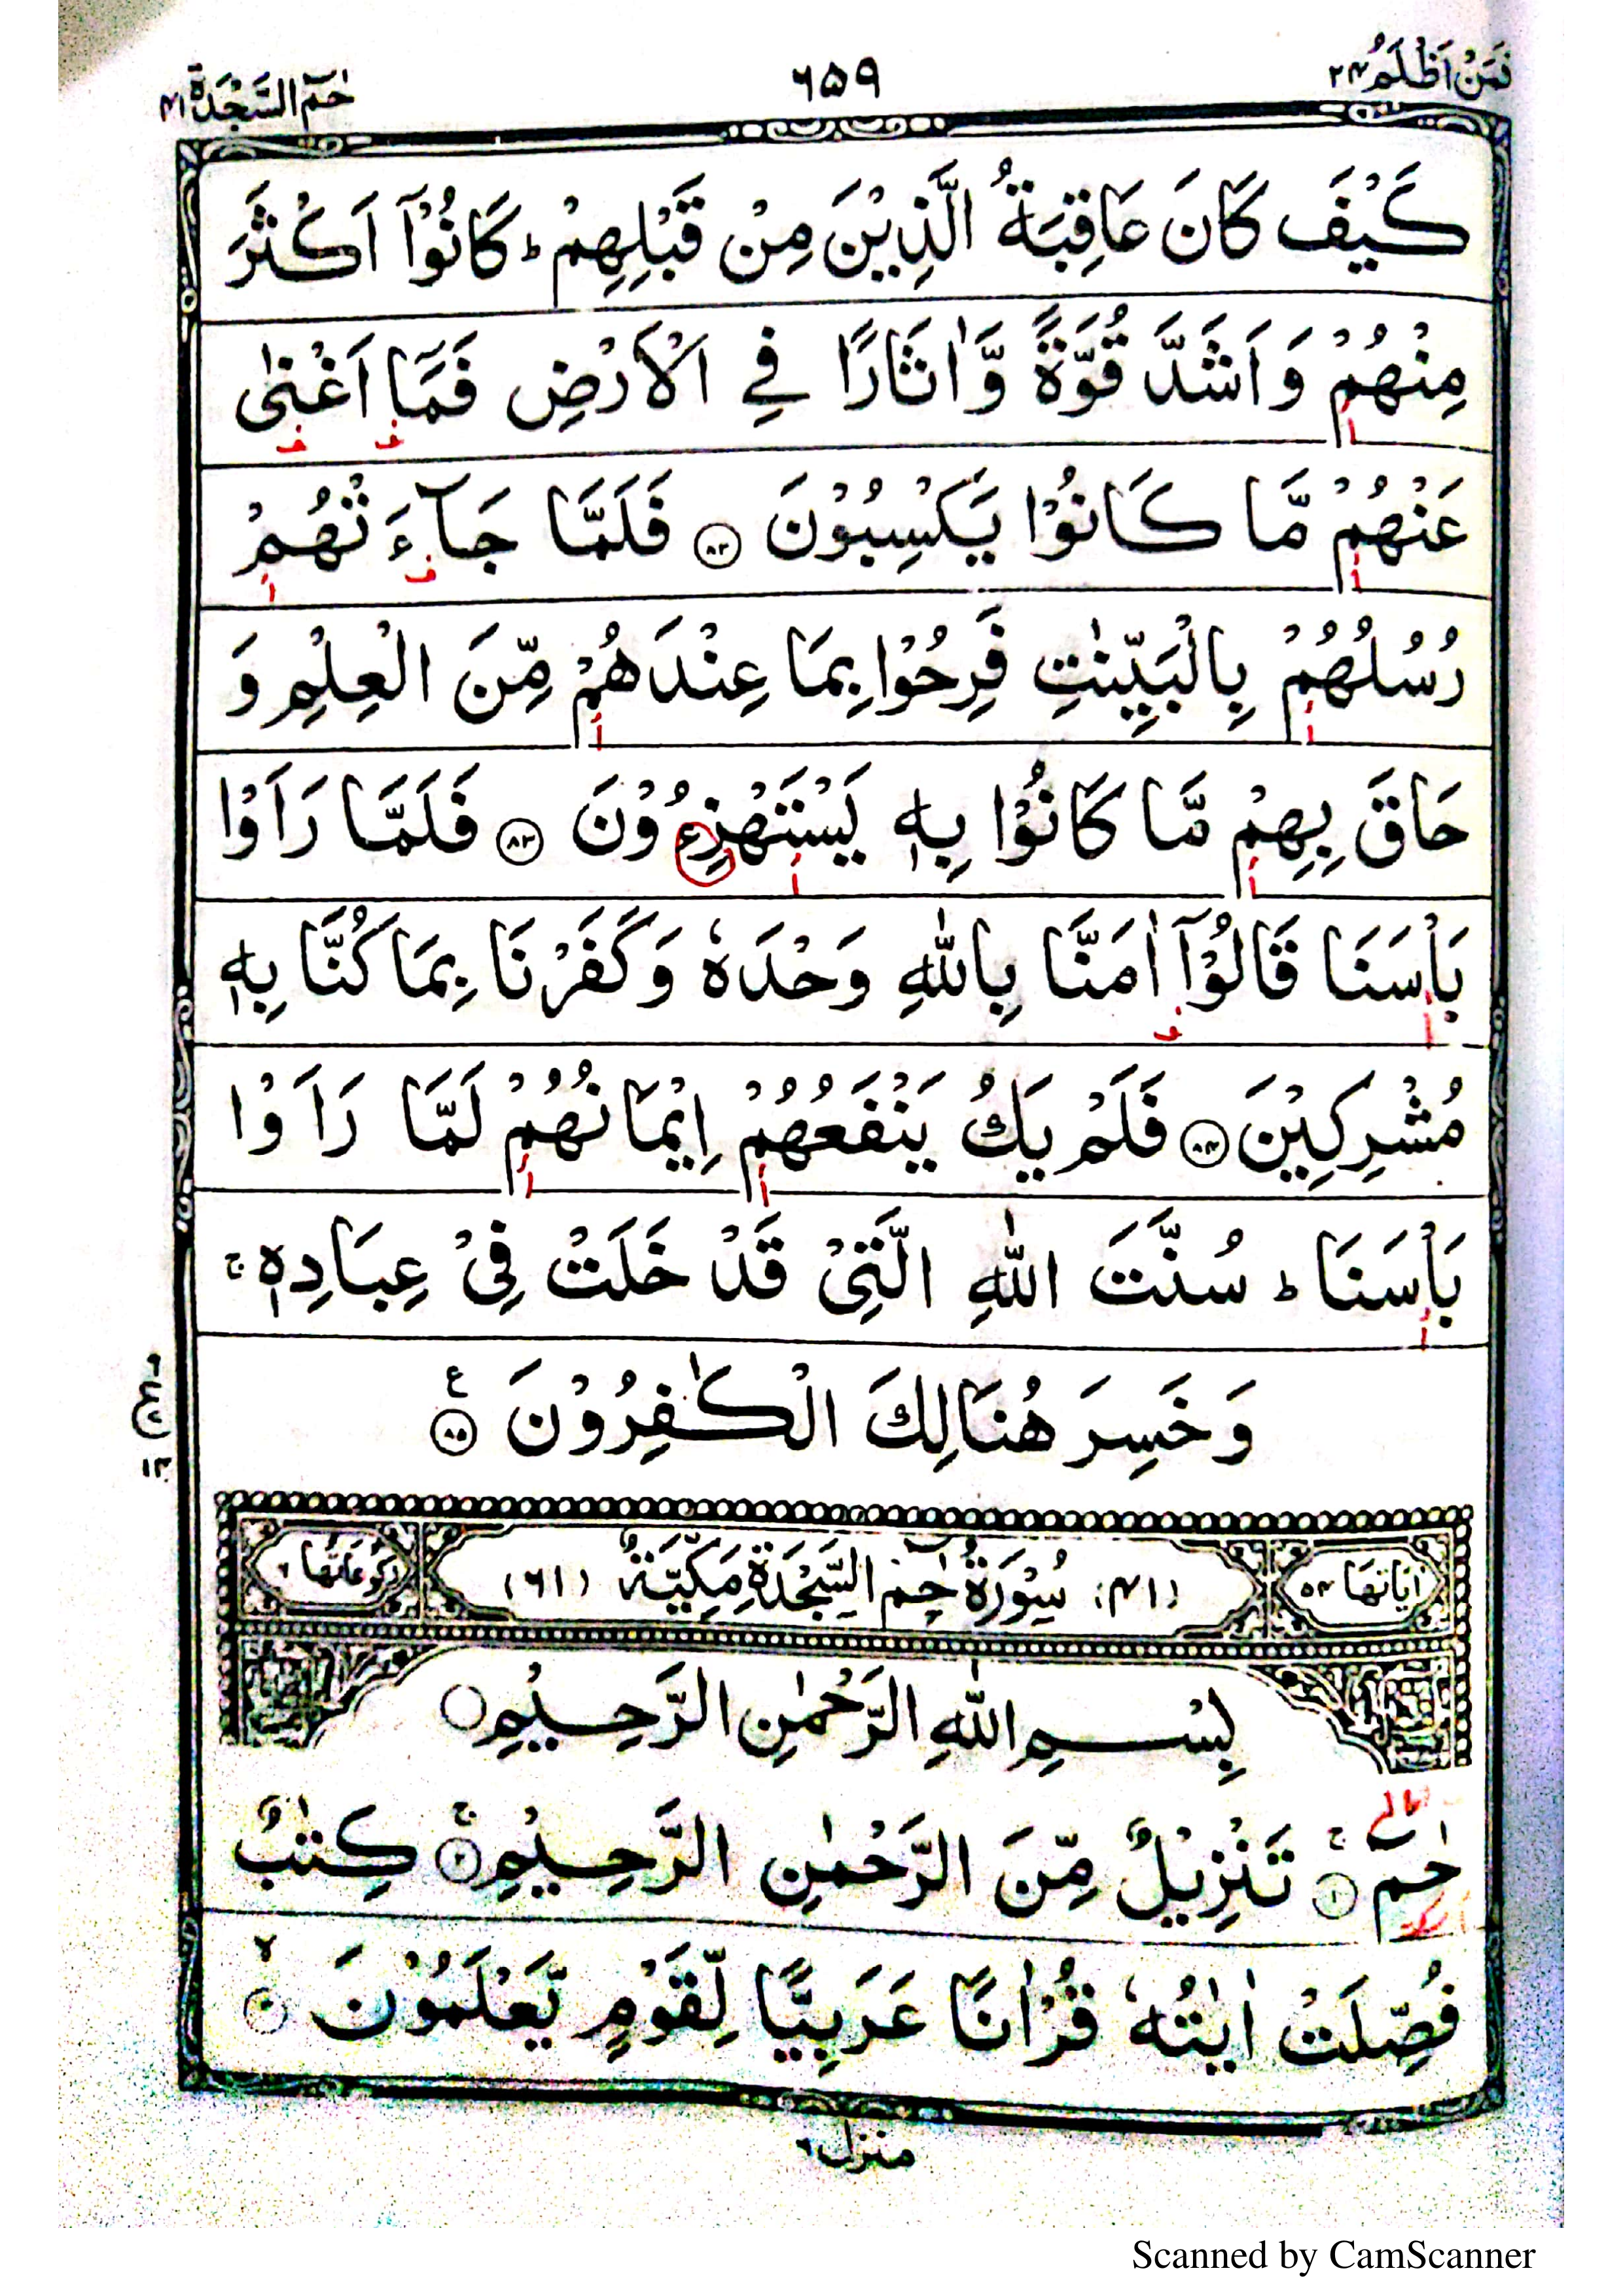 فَمَنْ اَظْلَمُ ٢٤
٦٥٩
حٰمٓ السَّجْدَة ٤١
كَيْفَ كَانَ عَاقِبَةُ الَّذِيْنَ مِنْ قَبْلِهِمْ ؕ كَانُوْۤا اَكْثَرَ
مِنْهُمْ وَاَشَدَّ قُوَّةً وَّاٰثَارًا فِي الْاَرْضِ فَمَاۤ اَغْنٰى
عَنْهُمْ مَّا كَانُوْا يَكْسِبُوْنَ ٨٢ فَلَمَّا جَآءَتْهُمْ
رُسُلُهُمْ بِالْبَيِّنٰتِ فَرِحُوْا بِمَا عِنْدَهُمْ مِّنَ الْعِلْمِ وَ
حَاقَ بِهِمْ مَّا كَانُوْا بِهٖ يَسْتَهْزِءُوْنَ ٨٣ فَلَمَّا رَاَوْا
بَاْسَنَا قَالُوْۤا اٰمَنَّا بِاللّٰهِ وَحْدَهٗ وَكَفَرْنَا بِمَا كُنَّا بِهٖ
مُشْرِكِيْنَ ٨٤ فَلَمْ يَكُ يَنْفَعُهُمْ اِيْمَانُهُمْ لَمَّا رَاَوْا
بَاْسَنَا ؕ سُنَّتَ اللّٰهِ الَّتِيْ قَدْ خَلَتْ فِيْ عِبَادِهٖ ۚ
وَخَسِرَ هُنَالِكَ الْكٰفِرُوْنَ ٨٥ ع
اٰيَاتُهَا ٥٤ (٤١) سُوْرَةُ حٰمٓ السَّجْدَةِ مَكِّيَّةٌ (٦١) رُكُوْعَاتُهَا ٦
بِسْمِ اللّٰهِ الرَّحْمٰنِ الرَّحِيْمِ
حٰمٓ ۚ ١ تَنْزِيْلٌ مِّنَ الرَّحْمٰنِ الرَّحِيْمِ ۚ ٢ كِتٰبٌ
فُصِّلَتْ اٰيٰتُهٗ قُرْاٰنًا عَرَبِيًّا لِّقَوْمٍ يَّعْلَمُوْنَ ۙ ٣
منزل ٦
Scanned by CamScanner